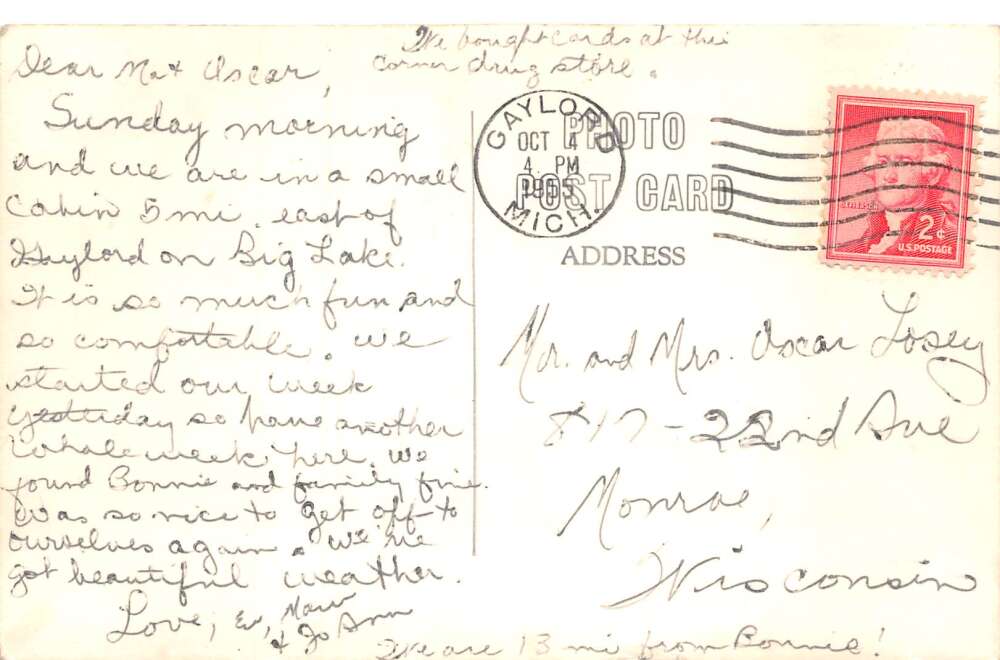 We bought cards at the
corner drug store.
Dear Ma & Oscar,
Sunday morning
and we are in a small
Cabin 5 mi. east of
Gaylord on Big Lake.
It is so much fun and
so comfortable. We
started our week
yesterday so have another
whole week here. We
found Bonnie and family fine.
Was so nice to get off to
ourselves again. We've
got beautiful weather.
Love, Ev,
& Jo Ann
We are 13 mi from Bonnie!
GAYLORD
OCT 4
4 PM
1965
MICH.
PHOTO
POST CARD
ADDRESS
JEFFERSON
2¢
U.S. POSTAGE
Mr. and Mrs. Oscar Losey
817-22nd Ave
Monroe,
Wisconsin